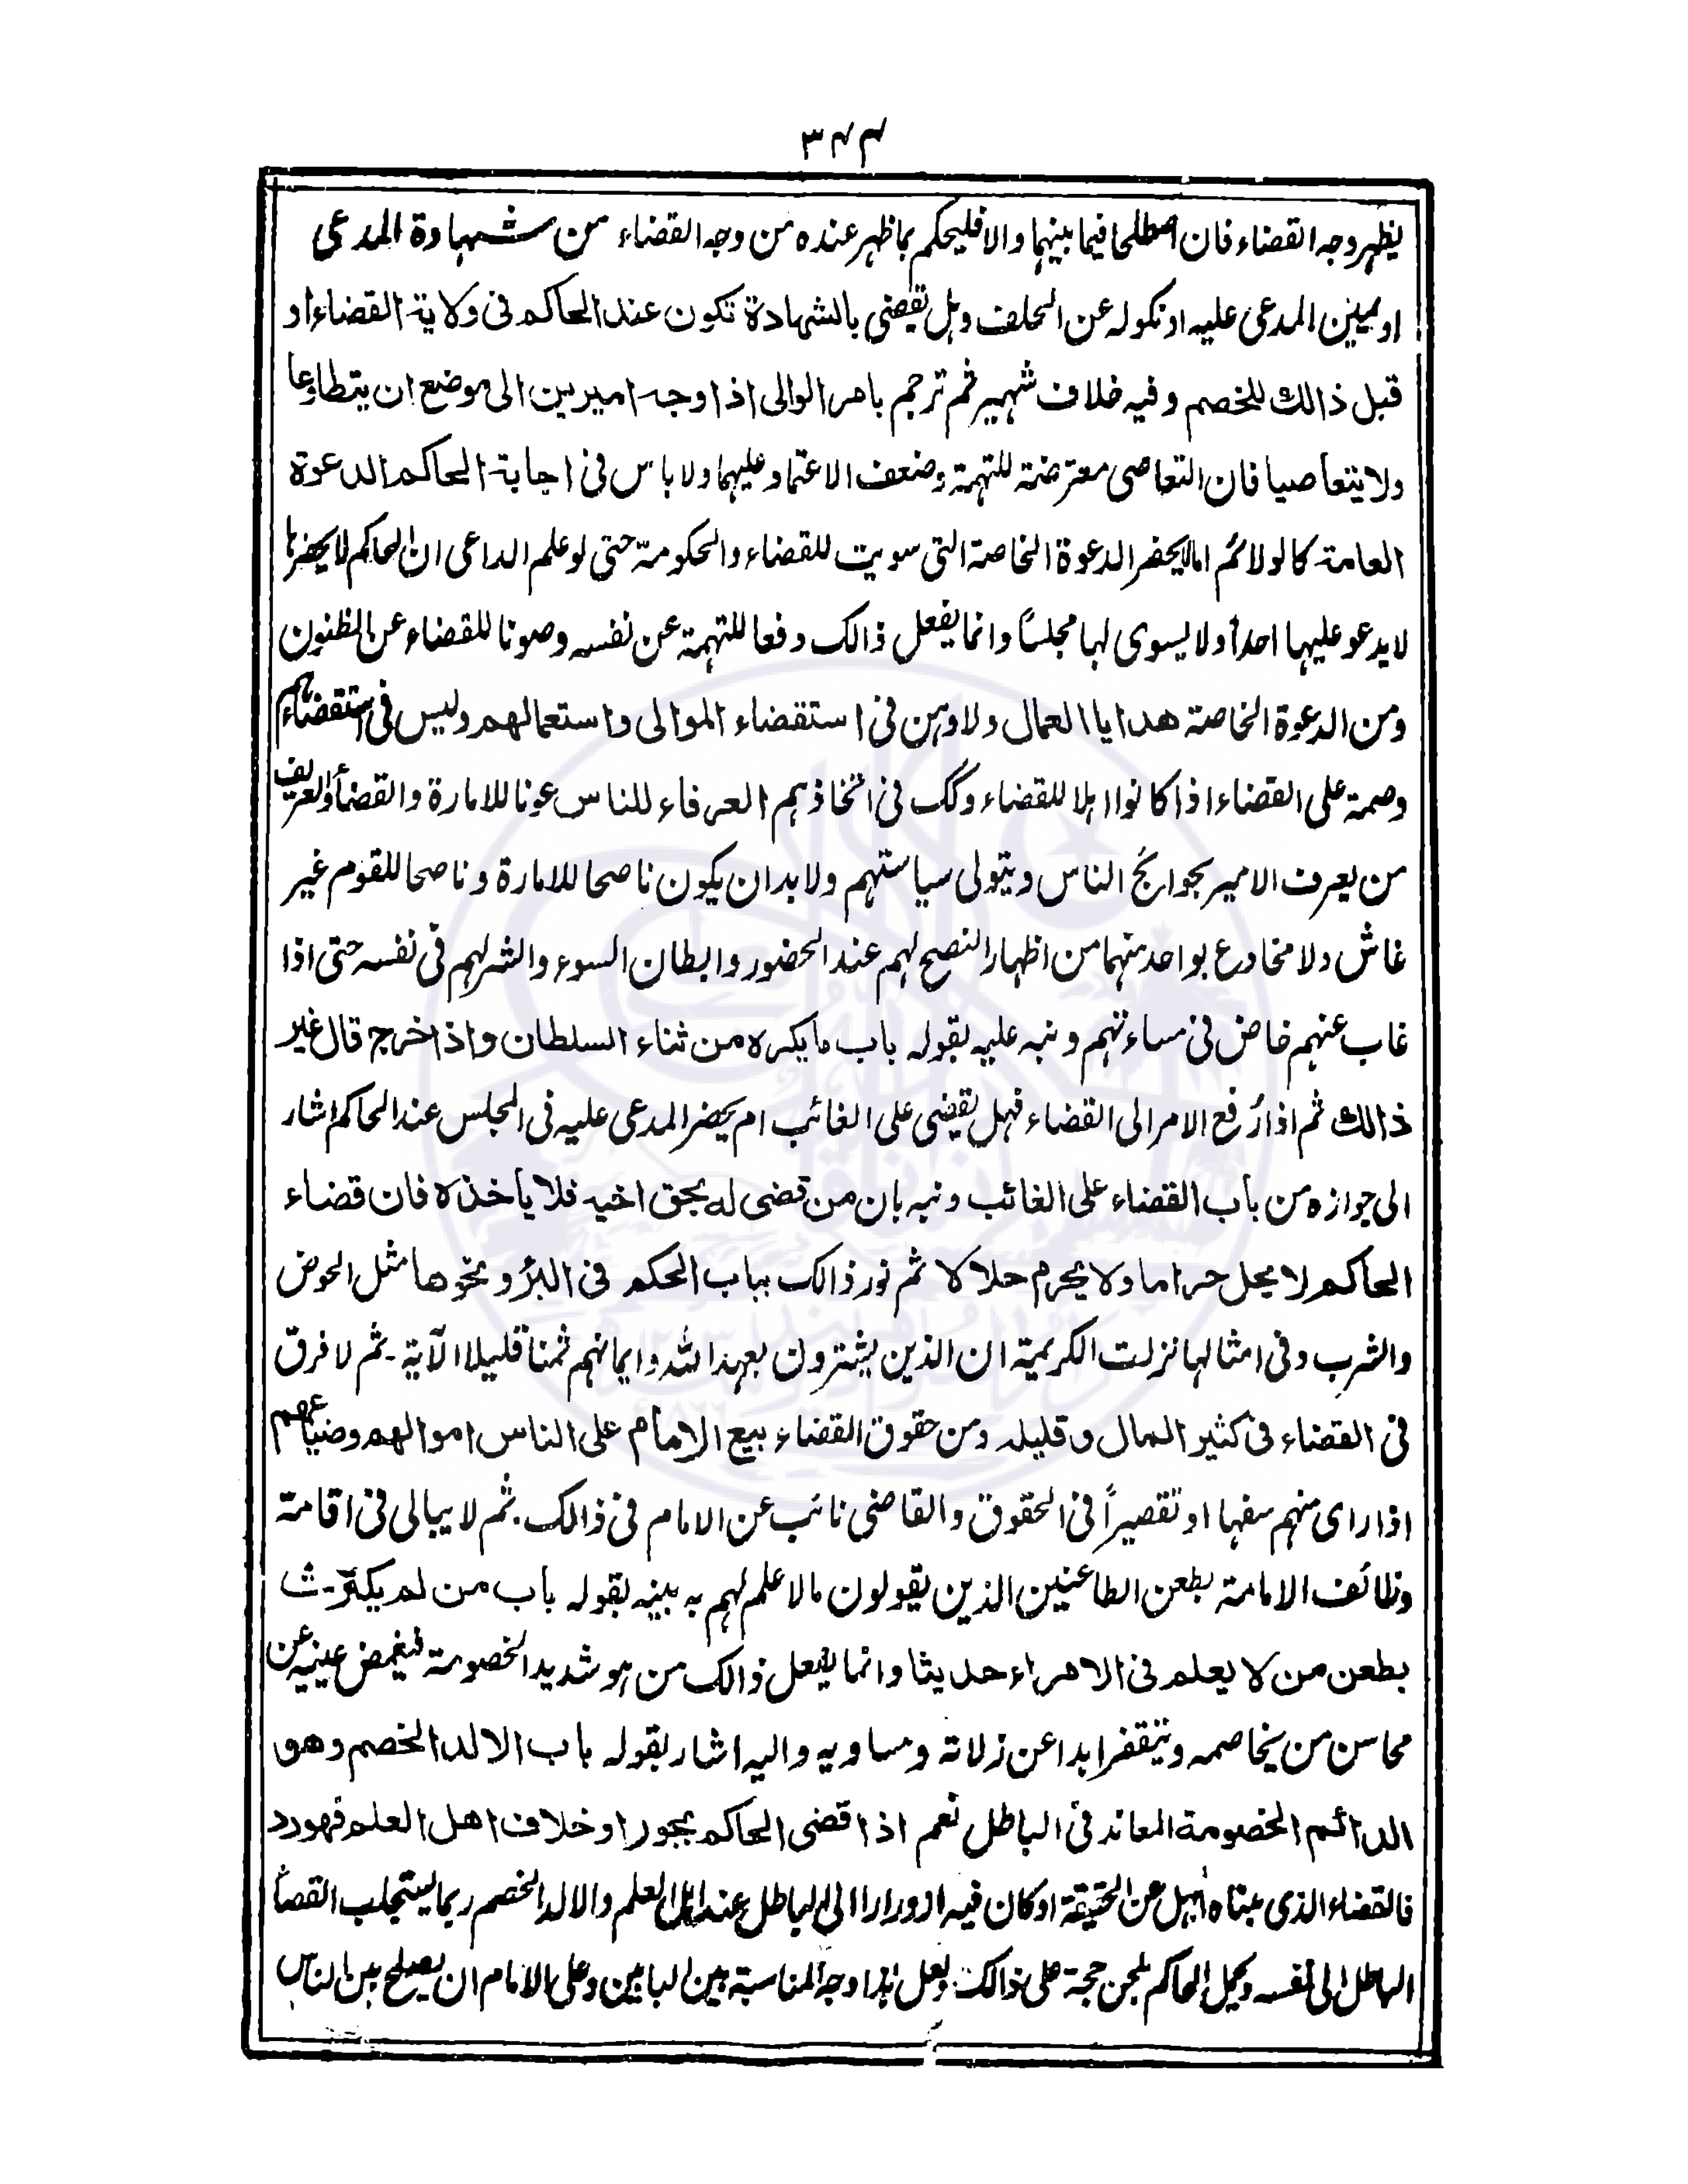 ٣٤٤
يظهر وجه القضاء فان اصطلحا فيما بينهما والا فليحكم بما ظهر عنده من وجه القضاء من شهادة المدعى
او يمين المدعى عليه او نكوله عن الحلف وهل يقضى بالشهادة تكون عند الحاكم فى ولاية القضاء او
قبل ذالك للخصم وفيه خلاف شهير ثم ترجم بامر الوالى اذا وجه اميرين الى موضع ان يتطاوعا
ولا يتعاصيا فان التعاصى معترضة للتهمة وضعف الاعتماد عليهما ولا باس فى اجابة الحاكم الدعوة
العامة كالولائم اما لا يحضر الدعوة الخاصة التى سويت للقضاء والحكومة حتى لو علم الداعى ان الحاكم لا يحضرها
لا يدعو عليها احدا ولا يسوى لها مجلسا وانما يفعل ذالك دفعا للتهمة عن نفسه وصونا للقضاء عن الظنون
ومن الدعوة الخاصة هدايا العمال ولا وهن فى استقضاء الموالى واستعمالهم وليس فى استقضاءهم
وصمة على القضاء اذا كانوا اهلا للقضاء وكك فى اتخاذهم العرفاء للناس عونا للامارة والقضاء والعريف
من يعرف الامير بحوائج الناس ويتولى سياستهم ولا بد ان يكون ناصحا للامارة وناصحا للقوم غير
غاش ولا مخادع بواحد منهما من اظهار النصح لهم عند الحضور وابطان السوء والشر لهم فى نفسه حتى اذا
غاب عنهم خاض فى مساءتهم ونبه عليه بقوله باب ما يكره من ثناء السلطان واذا خرج قال غير
ذالك ثم اذا رُفع الامر الى القضاء فهل يقضى على الغائب ام يحضر المدعى عليه فى المجلس عند الحاكم اشار
الى جوازه من باب القضاء على الغائب ونبه بان من قضى له بحق اخيه فلا ياخذه فان قضاء
الحاكم لا يحل حراما ولا يحرم حلالا ثم نور ذالك بباب الحكم فى البئر ونحوها مثل الحوض
والشرب وفى امثالها نزلت الكريمة ان الذين يشترون بعهد الله وايمانهم ثمنا قليلا الآية - ثم لا فرق
فى القضاء فى كثير المال وقليله ومن حقوق القضاء بيع الامام على الناس اموالهم وضياعهم
اذا راى منهم سفها او تقصيراً فى الحقوق والقاضى نائب عن الامام فى ذالك. ثم لا يبالى فى اقامة
وظائف الامامة بطعن الطاعنين الذين يقولون مالا علم لهم به بينه بقوله باب من لم يكترث
بطعن من لا يعلم فى الامراء حديثا وانما يفعل ذالك من هو شديد الخصومة فيغمض عينيه عن
محاسن من يخاصمه ويتقفر ابدا عن زلاته ومساويه واليه اشار بقوله باب الالد الخصم وهو
الدائم الخصومة المعاند فى الباطل نعم اذا قضى الحاكم بجور او خلاف اهل العلم فهو رد
فالقضاء الذى مبناه الجهل عن الحقيقة او كان فيه ازورارا الى الباطل عند اهل العلم والالد الخصم ربما يستجلب القضاء
الباطل الى نفسه ويحمل الحاكم بلحن حجة على ذالك. ولعل هذا وجه المناسبة بين البابين وعلى الامام ان يصلح بين الناس